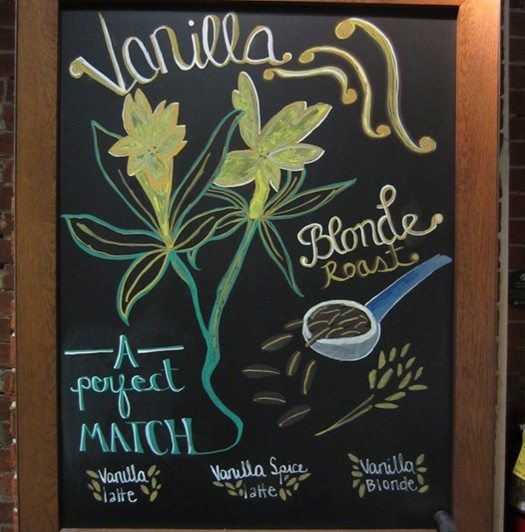 Vanilla
Blonde
Roast
A
perfect
MATCH
Vanilla
latte
Vanilla Spice
latte
Vanilla
Blonde